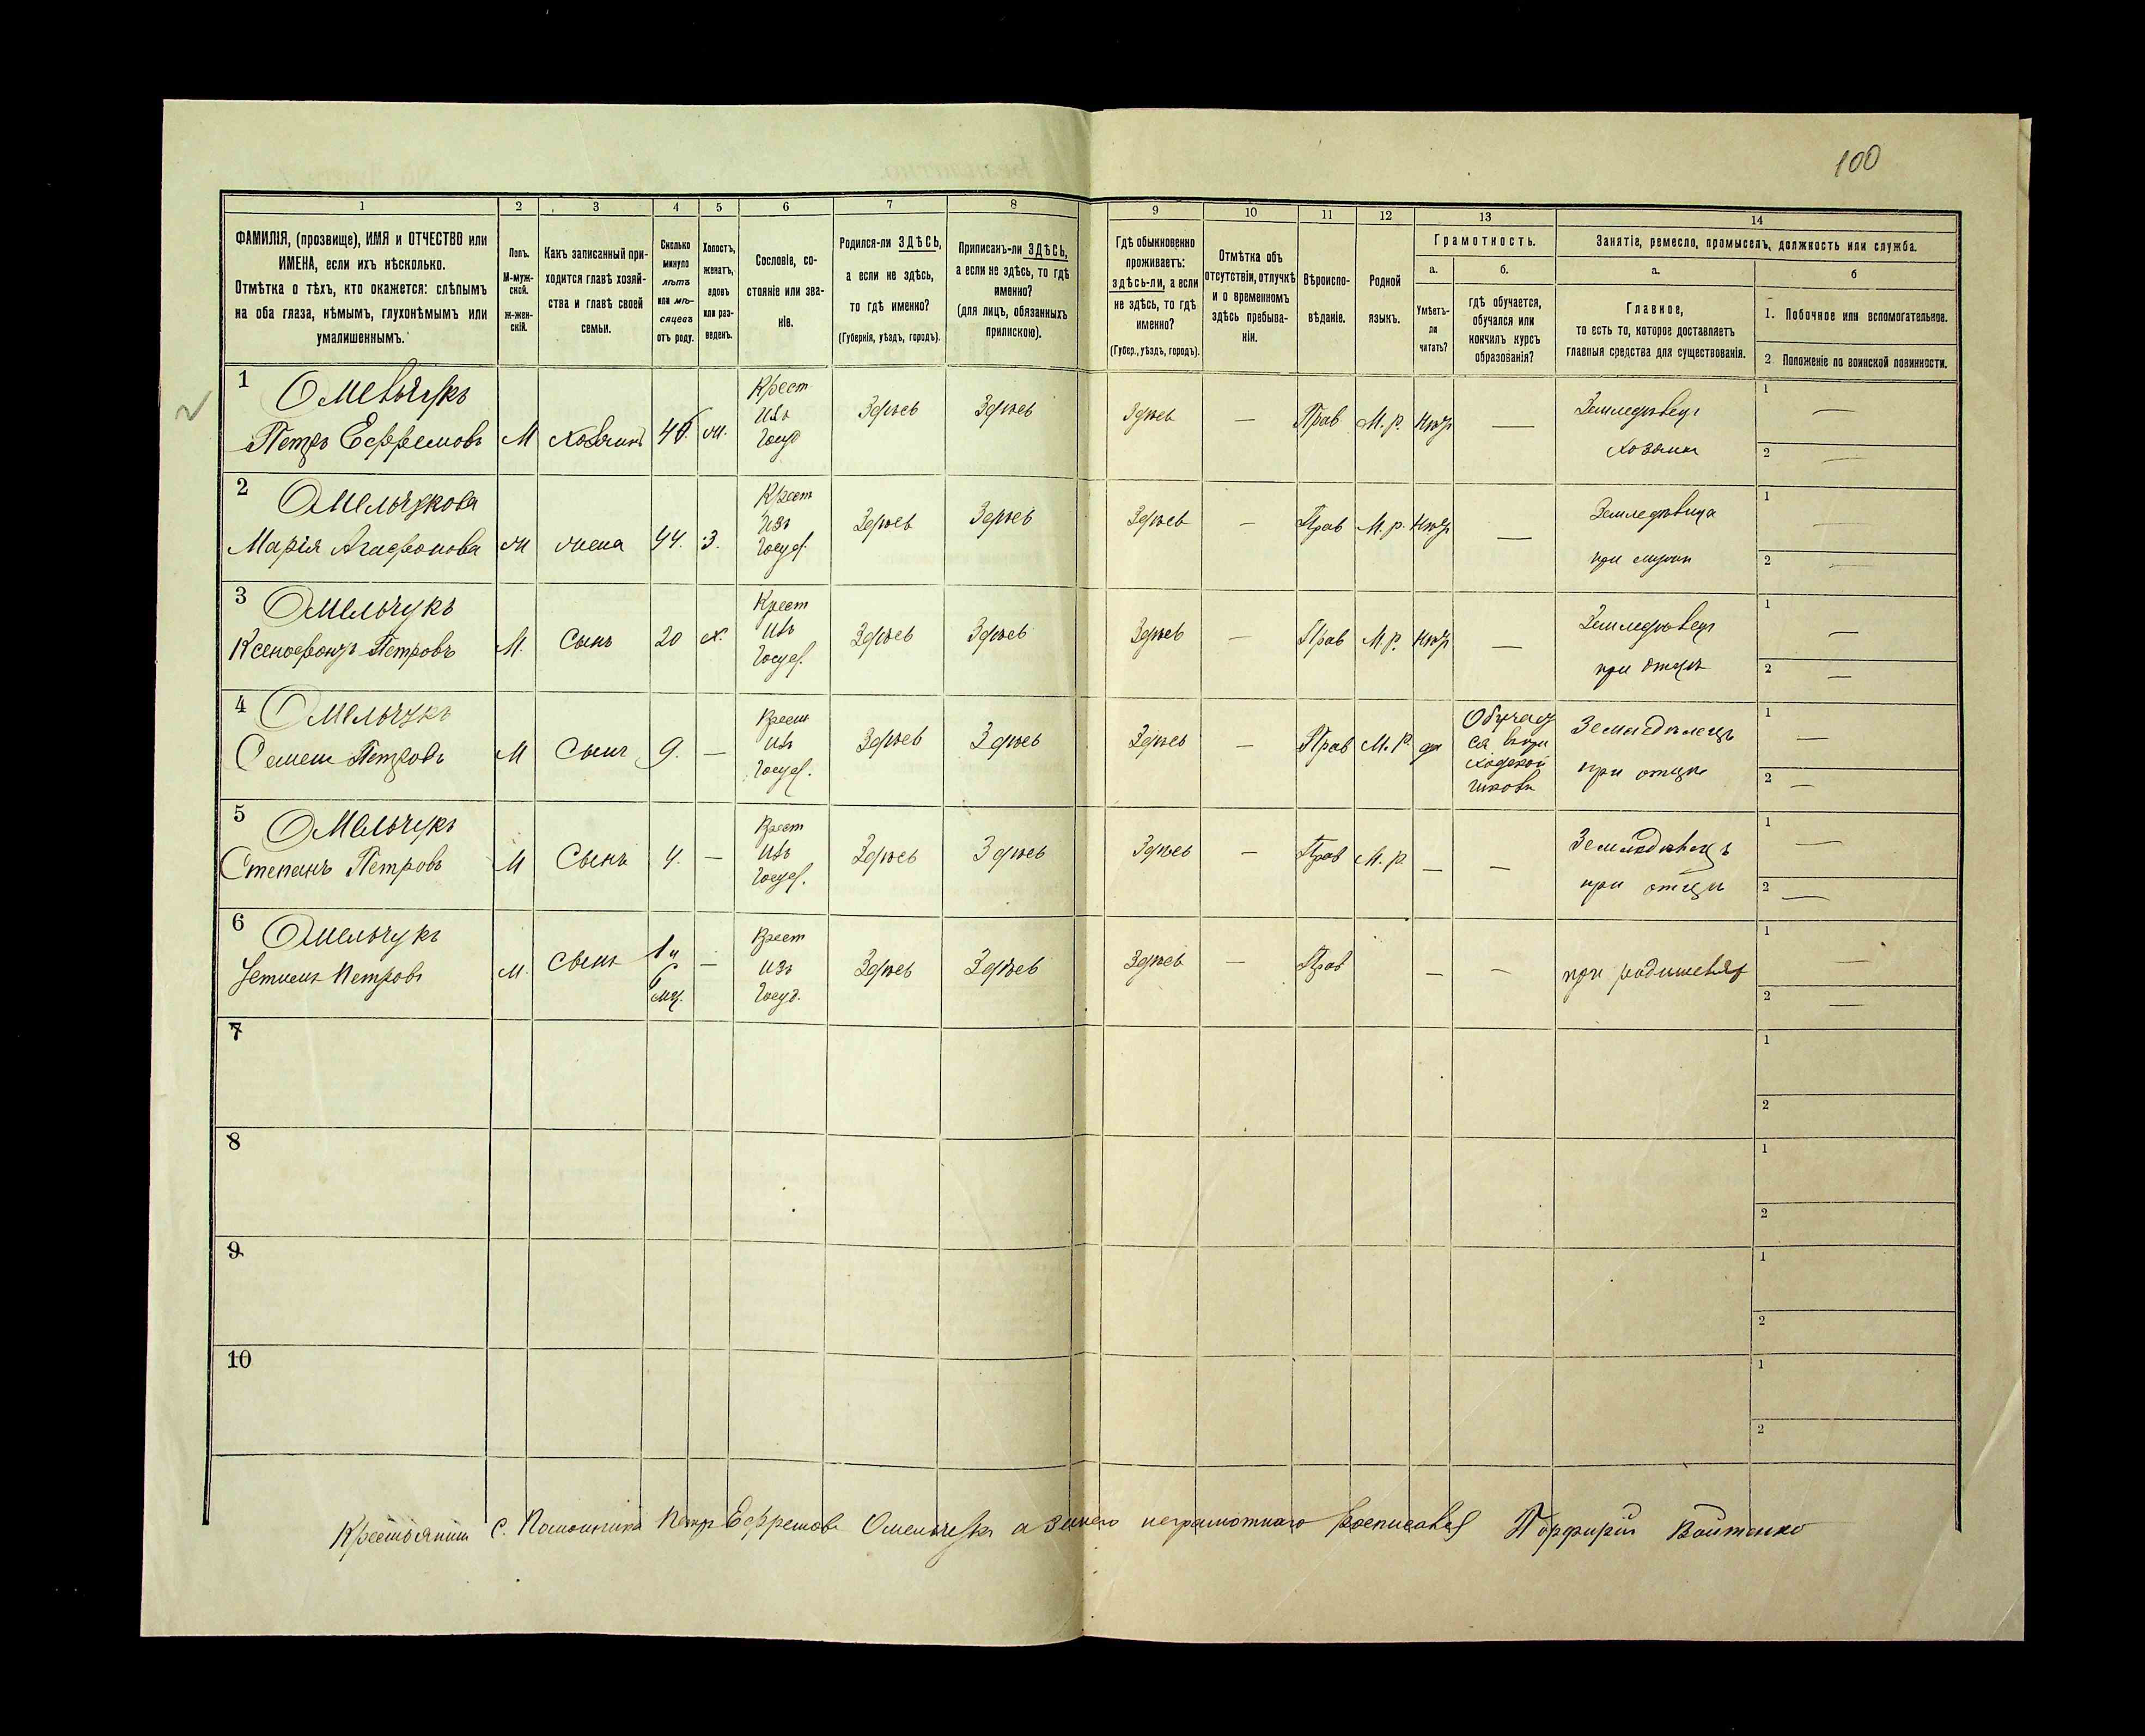 100
1 2 3 4 5 6 7 8 9 10 11 12 13 14
ФАМИЛІЯ, (прозвище), ИМЯ и ОТЧЕСТВО или
ИМЕНА, если ихъ нѣсколько.
Отмѣтка о тѣхъ, кто окажется: слѣпымъ
на оба глаза, нѣмымъ, глухонѣмымъ или
умалишеннымъ.
Полъ.
М-муж-
ской.
ж-жен-
скій.
Какъ записанный при-
ходится главѣ хозяй-
ства и главѣ своей
семьи.
Сколько
минуло
лѣтъ
или мѣ-
сяцевъ
отъ роду.
Холостъ,
женатъ,
вдовъ
или раз-
веденъ.
Сословіе, со-
стояніе или зва-
ніе.
Родился-ли ЗДѢСЬ,
а если не здѣсь,
то гдѣ именно?
(Губернія, уѣздъ, городъ).
Приписанъ-ли ЗДѢСЬ,
а если не здѣсь, то гдѣ
именно?
(для лицъ, обязанныхъ
припискою).
Гдѣ обыкновенно
проживаетъ:
здѣсь-ли, а если
не здѣсь, то гдѣ
именно?
(Губер., уѣздъ, городъ).
Отмѣтка объ
отсутствіи, отлучкѣ
и о временномъ
здѣсь пребыва-
ніи.
Вѣроиспо-
вѣданіе.
Родной
языкъ.
Грамотность.
а.
Умѣетъ-
ли
читать?
б.
гдѣ обучается,
обучался или
кончилъ курсъ
образованія?
Занятіе, ремесло, промыселъ, должность или служба.
а.
Главное,
то есть то, которое доставляетъ
главныя средства для существованія.
б
1. Побочное или вспомогательное.
2. Положеніе по воинской повинности.
1
Омельчукъ
Петръ Ефремовъ М хозяинъ ж.
Крест
изъ
Госуд
Здѣсь Здѣсь Здѣсь — Прав М. р. нѣт —
Земледѣлец
хозяин
1 —
2 —
2
Омельчукова
Марія Агафонова м жена 44. З.
Крест
изъ
Госуд.
Здѣсь Здѣсь Здѣсь — Прав М. р. нѣт —
Земледѣлица
при мужи
1 —
2 —
3
Омельчукъ
Ксенофонтъ Петровъ М. Сынъ 20 х.
Крест
изъ
Госуд.
Здѣсь Здѣсь Здѣсь — Прав М. р. нѣт —
Земледѣлец
при отцѣ
1 —
2 —
4
Омельчукъ
Семен Петровъ М Сынъ 9. —
Крест
изъ
Госуд.
Здѣсь Здѣсь Здѣсь — Прав М. р. да
Обучает
ся в при
ходской
школи
Земледѣлецъ
при отцѣ
1 —
2 —
5
Омельчукъ
Степанъ Петровъ М Сынъ 4. —
Крест
изъ
Госуд.
Здѣсь Здѣсь Здѣсь — Прав М. р. — —
Земледѣлецъ
при отцѣ
1 —
2 —
6
Омельчукъ
Петровъ М. Сынъ —
1 и
6
мц.
Крест
изъ
Госуд.
Здѣсь Здѣсь Здѣсь — Прав — —
при родителях
1 —
2 —
7
1
2
8
1
2
9
1
2
10
1
2
Крестьянин С. Петр Ефремовъ Омельчукъ а за него неграмотнаго росписался Порфирій Войтенко